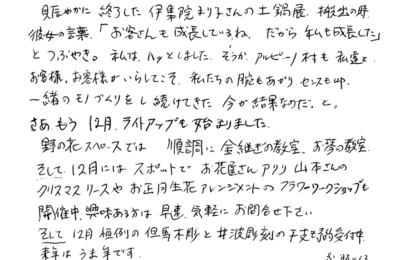 賑やかに終了した伊集院まり子さんの土鍋展、搬出の時
彼女の言葉、「お客さんも成長しているね、だから私も成長した」
とつぶやき。私はハッとしました。そうか、アルビーノ村も私達と
お客様、お客様がいらしてこそ、私たちの腕もあがり、センスもup、
一緒のモノづくりをし続けてきた今が結果なのだ。と。
さあ、もう12月、ライトアップも始まりました。
野の花スペースでは 順調に金継ぎの教室、お茶の教室
そして、12月にはスポットでお花屋さん 山本さんの
クリスマスリースやお正月生花アレンジメントのフラワーワークショップも
開催中、興味ある方は早速、気軽にお問合せ下さい
そして12月恒例の但馬木彫と井波彫刻の干支も予約受付中
来年はうま年です。